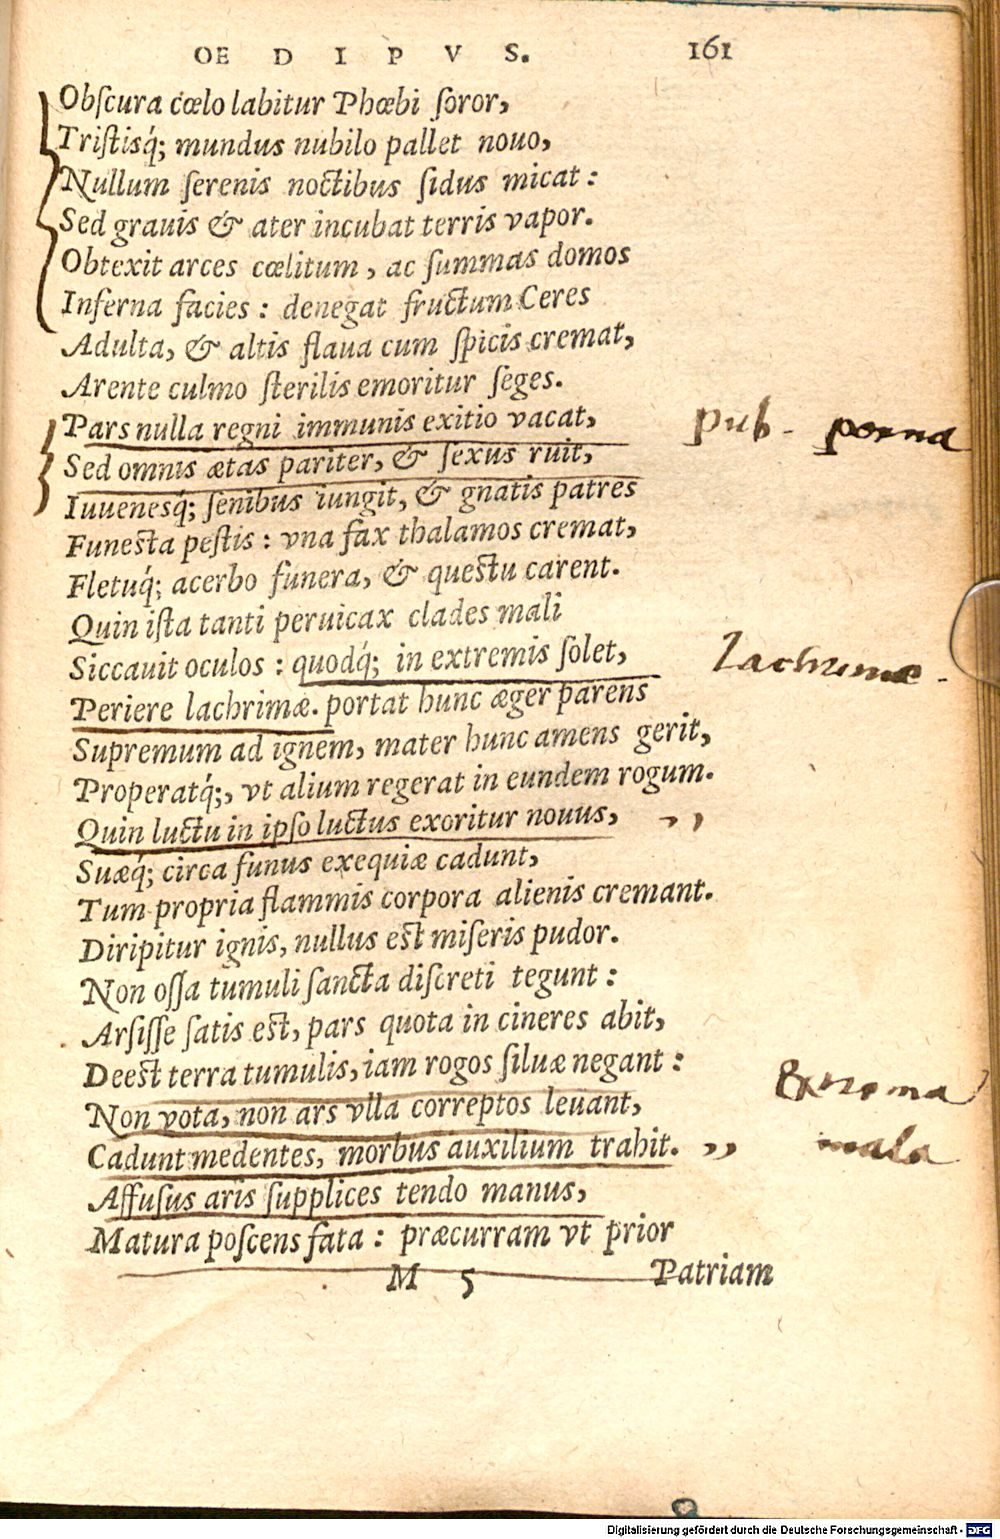 OE D I P V S. 161
Obſcura cœlo labitur Phœbi ſoror,
Triſtisq́; mundus nubilo pallet nouo,
Nullum ſerenis noctibus ſidus micat:
Sed grauis & ater incubat terris vapor.
Obtexit arces cœlitum, ac ſummas domos
Inferna facies: denegat fructum Ceres
Adulta, & altis flaua cum ſpicis cremat,
Arente culmo ſterilis emoritur ſeges.
Pars nulla regni immunis exitio vacat, pub. poena
Sed omnis ætas pariter, & ſexus ruit,
Iuuenesq́; ſenibus iungit, & gnatis patres
Funeſta peſtis: vna fax thalamos cremat,
Fletuq́; acerbo funera, & queſtu carent.
Quin iſta tanti peruicax clades mali
Siccauit oculos: quodq́; in extremis ſolet, Lachrimæ.
Periere lachrimæ. portat hunc æger parens
Supremum ad ignem, mater hunc amens gerit,
Properatq́;, vt alium regerat in eundem rogum.
Quin luctu in ipſo luctus exoritur nouus, ,,
Suæq́; circa funus exequiæ cadunt,
Tum propria flammis corpora alienis cremant.
Diripitur ignis, nullus eſt miſeris pudor.
Non oſſa tumuli ſancta diſcreti tegunt:
Arſiſſe ſatis eſt, pars quota in cineres abit,
Deeſt terra tumulis, iam rogos ſiluæ negant:
Non vota, non ars vlla correptos leuant, Extrema
Cadunt medentes, morbus auxilium trahit. ,, mala
Affuſus aris ſupplices tendo manus,
Matura poſcens fata: præcurram vt prior
M 5 Patriam
Digitalisierung gefördert durch die Deutsche Forschungsgemeinschaft - DFG